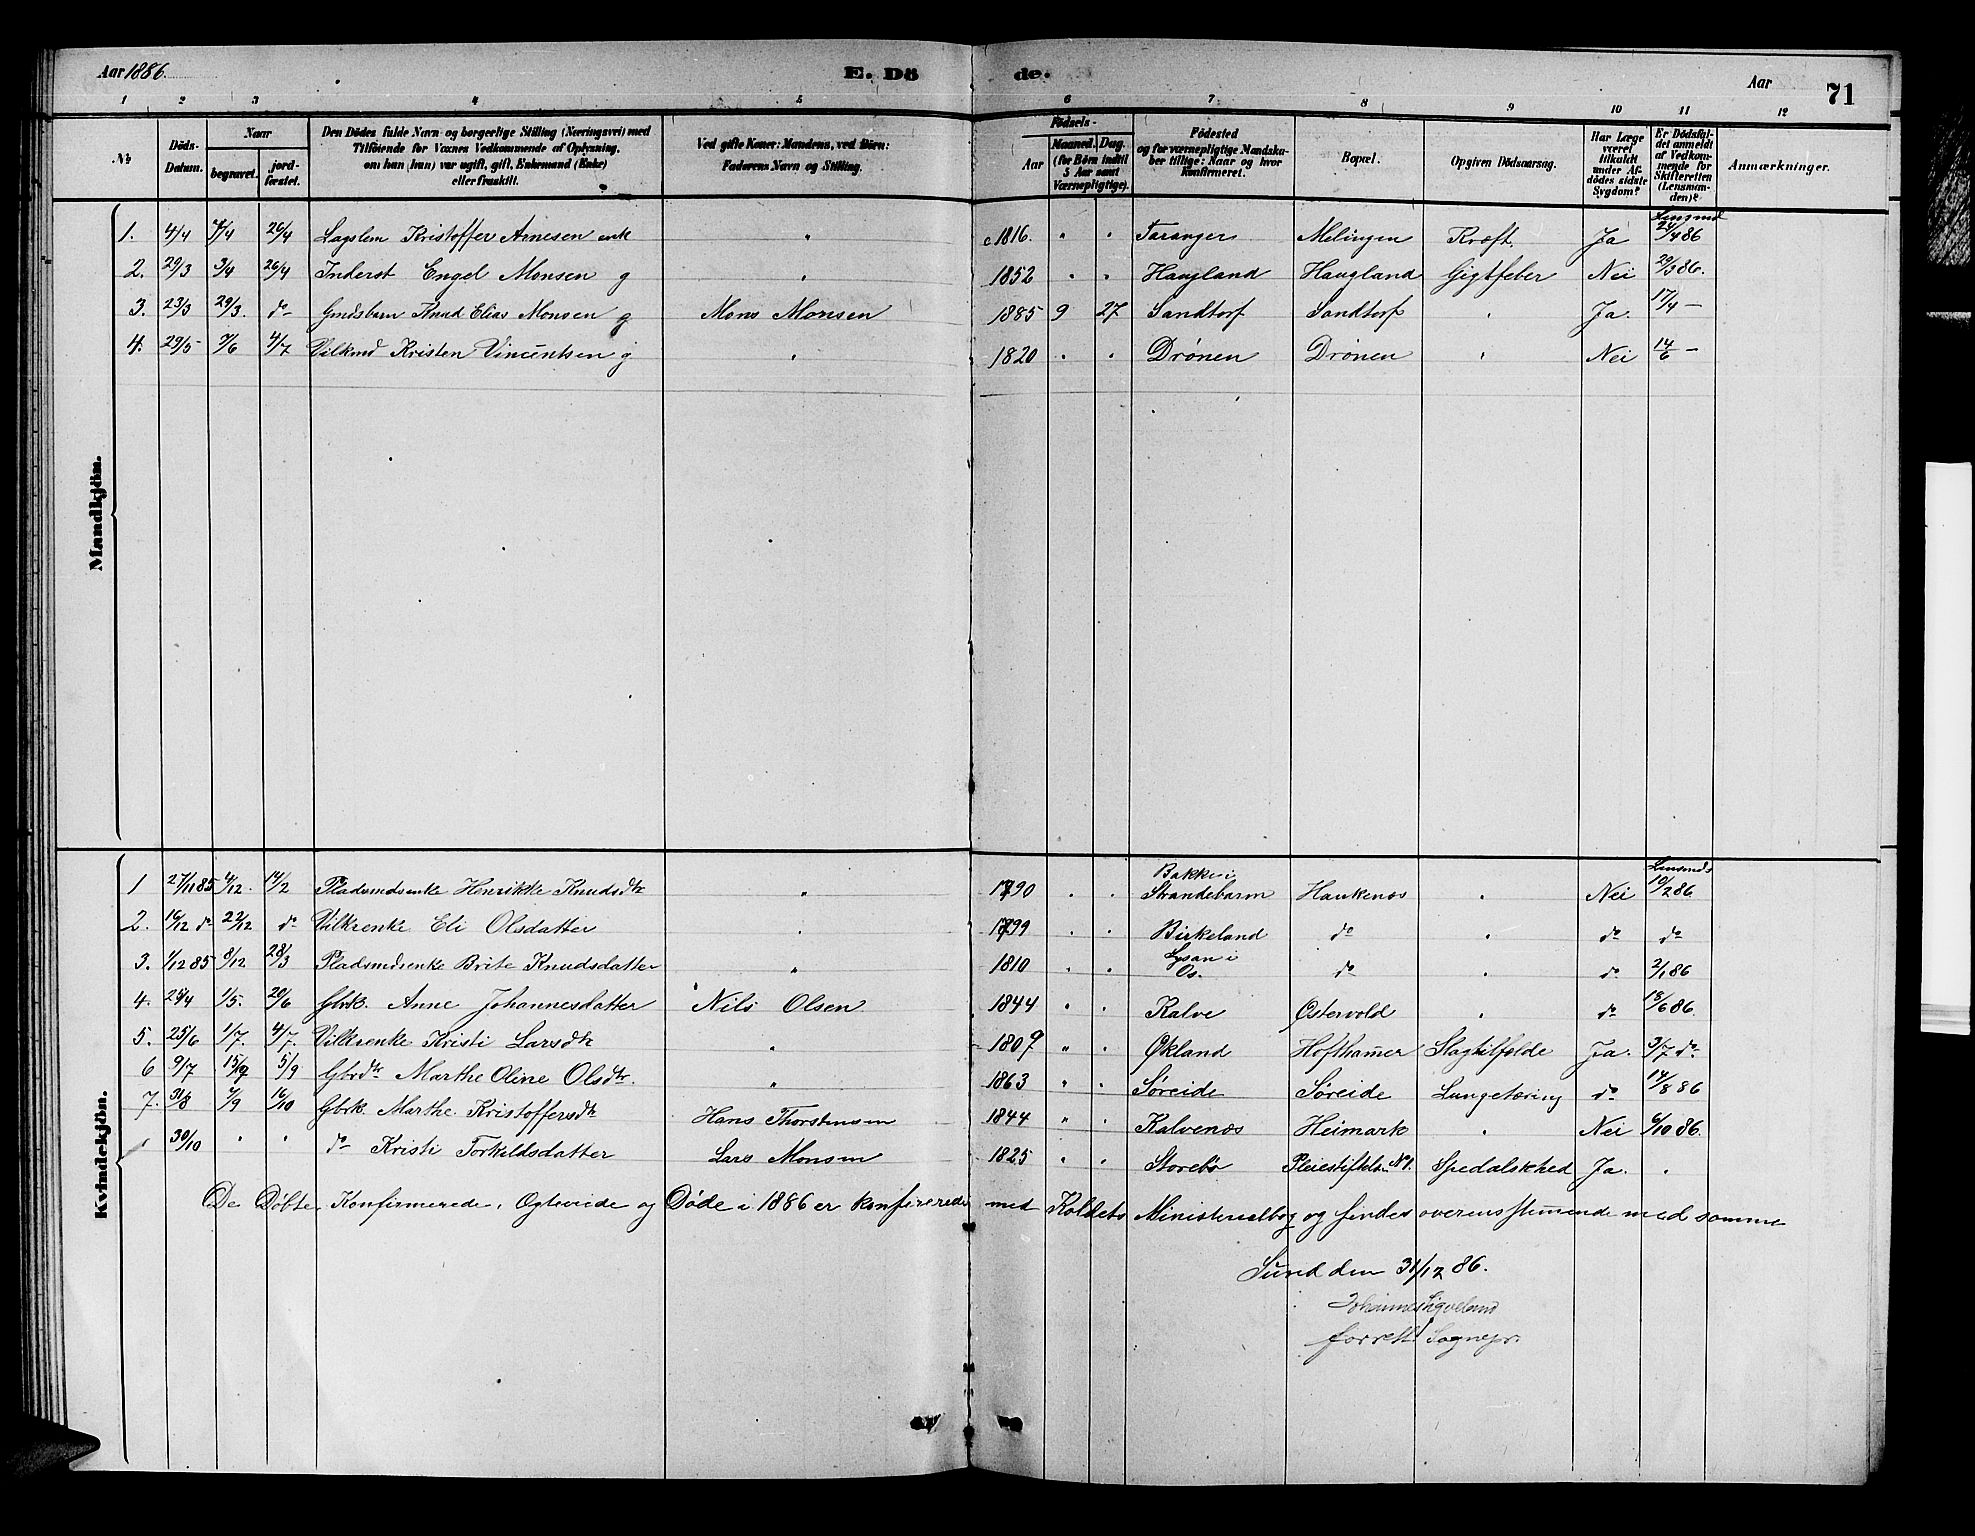 Aar 1886. E. Dö de. Aar 71
1 2 3 4 5 6 7 8 9 10 11 12
No Döds-Datum. Naar begravet. jordfæstet. Den Dödes fulde Navn og borgerlige Stilling (Næringsvei) med Tilföiende for Voxnes Vedkommende af Oplysning, om han (hun) var ugift, gift, Enkemand (Enke) eller fraskilt. Ved gifte Koner: Mandens, ved Börn: Faderens Navn og Stilling. Födsels- Aar Maaned. Dag. (for Börn indtil 5 Aar samt Værnepligtige). Födested og for værnepligtige Mandskaber tillige: Naar og hvor konfirmeret. Bopæl. Opgiven Dödsaarsag. Har Læge været tilkaldt under Afdödes sidste Sygdom? Er Dödsfaldet anmeldt af Vedkommende for Skifteretten (Lensmanden)? Anmærkninger.
Mandkjön.
1. 4/4 7/4 26/4 Lagslem Kristoffer Arnesen enk " c 1816. " " Taranger Melingen Kræft Ja Lensmd 24/4 86
2. 29/3 3/4 26/4 Inderst Engel Monsen g " 1852 " " Haugland Haugland Gigtfeber Nei 29/3 86.
3. 23/3 29/3. do Gmdsbarn Knud Elias Monsen g Mons Monsen 1885 9 27 Sandtorf Sandtorf " Ja. 17/4 —
4. 29/5 3/6 4/7 Vilkmd Kristen Vincentsen g " 1820 " " Drønen Drønen " Nei 14/6 —
Kvindekjön.
1 27/11 85 4/12. 14/2 Pladsmdsenke Henrikke Knudsdtr " 1790 " " Bakke i Strandebarm Haukenæs " Nei Lensmd 10/2 86
2. 16/12 do 22/12 do Vilkrenke Eli Olsdatter " 1799 " " Birkeland do " do do
3. 1/12 85 8/12 28/3 Pladsmdsenke Brite Knudsdatter " 1810 " " Lysan i Os. do " do 2/1 86
4. 25/4 1/5. 20/6 Gbrk. Anne Johannesdatter Nils Olsen 1844 " " Kalve Østervold " do 18/6 86.
5. 25/6 1/7. 4/7. Vilkrenke Kristi Larsdtr " 1809 " " Økland Hofthamer Slagtilfælde Ja. 3/7 do
6 9/7 15/7 5/9 Gbrdtr Marthe Oline Olsdtr. " 1863 " " Søreide Søreide Lungetæring do 14/8 86
7. 31/8 7/9 16/10 Gbrk. Marthe Kristoffersdtr Hans Thorstensen 1844 " " Kalvenæs Heimark " Nei 6/10 86.
30/10 " " do Kristi Torkildsdatter Lars Monsen 1825 " " Storebø Pleiestiftels. No 1. Spedalskhed Ja. "
De Døbte, Konfirmerede, Ægteviede og Døde i 1886 er konfererede med Kaldets Ministerialbog og findes overensstemende med samme
Sund den 31/12 86.
Johannes Sigveland
forrett. Sognepr.